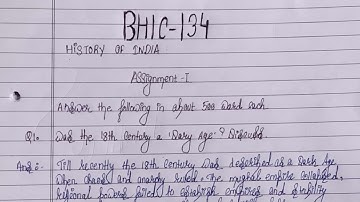 BHIC-134
HISTORY OF INDIA
Assignment-I
Answer the following in about 500 word each.
Q1. Was the 18th Century a 'Dary Age'? Discuss.
Ans:- Till recently the 18th Century was described as a Dark Age
When chaos and anarchy ruled. The mughal empire collapsed,
regional powers failed to establish empires and stability